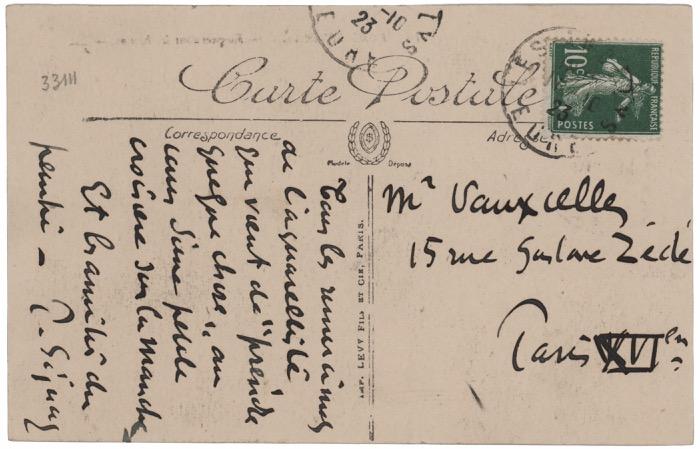 33111
23 -10
EURE
Carte Postale
10c
RÉPUBLIQUE FRANÇAISE
POSTES
Correspondance
Modèle Déposé
Mr Vauxcelles
15 rue Gustave Zédé
Paris XVI em
IMP. LEVY FILS ET CIE, PARIS.
Tous les remerciements
de l'aquarelliste
qui vient de "prendre
quelque chose", au
cours d'une petite
croisière sur la Manche
Et les amitiés du
peintre – P. Signac